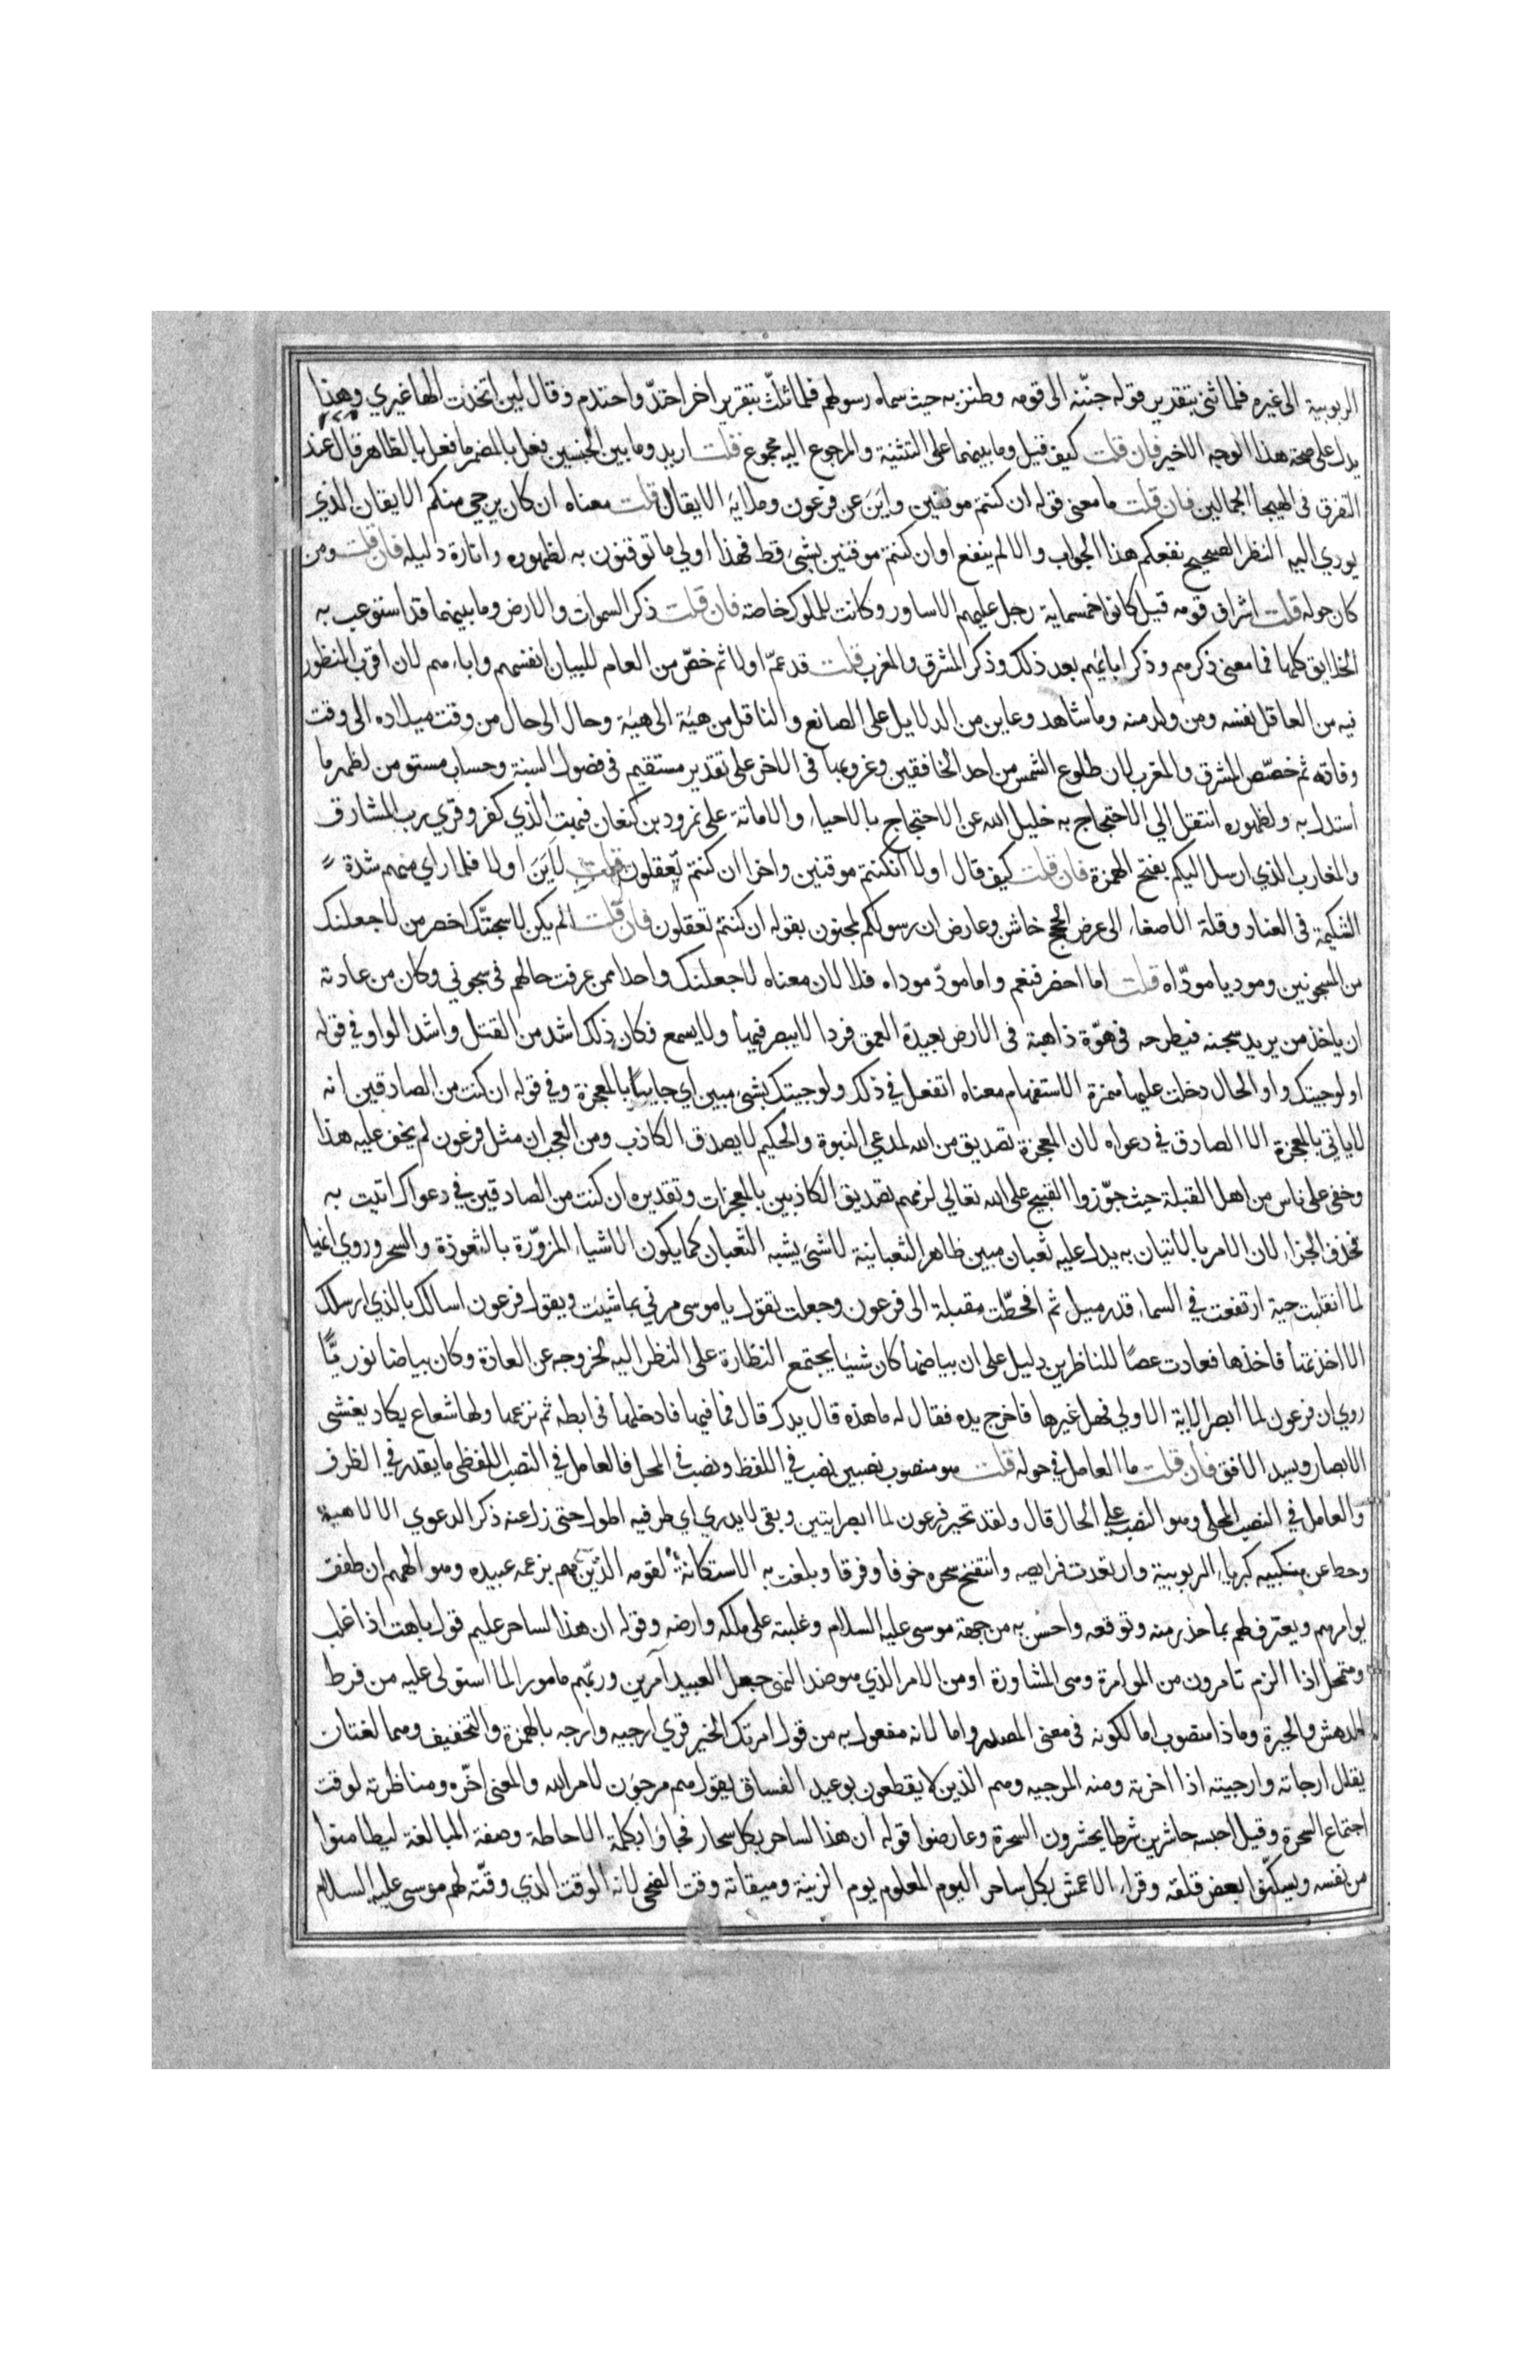 الربوبية الى غيره فلما ثنى بتقرير قوله جننه الى قومه وطنز به حيث سماه رسولهم فلما ثلث بتقرير اخر احتدّ واحتدم وقال لين اتخذت الها غيري وهذا
يدل على صحة هذا الوجه الاخير فان قلت كيف قيل وما بينهما على التثنية والمرجوع اليه مجموع قلت اريد وما بين الجنسين فعل بالمضمر ما فعل بالظاهر قال عند
التفرق في الهيجا الجمالين فان قلت ما معنى قوله ان كنتم موقنين واين عن فرعون وملايه الايقان قلت معناه ان كان يرجى منكم الايقان الذي
يودي اليه النظر الصحيح نفعكم هذا الجواب والا لم ينفع او ان كنتم موقنين بشئ قط فهذا اولى ما توقنون به لظهوره وانارة دليله فان قلت ومن
كان حوله قلت اشراف قومه قيل كانوا خمسماية رجل عليهم الاساور وكانت للملوك خاصة فان قلت ذكر السموات والارض وما بينهما قد استوعب به
الخلايق كلها فما معنى ذكرهم وذكر ابايهم بعد ذلك وذكر المشرق والمغرب قلت قد عمّ اولا ثم خصّ من العام للبيان انفسهم واباءهم لان اقرب المنظور
فيه من العاقل نفسه ومن ولد منه وما شاهد وعاين من الدلايل على الصانع والناقل من هيئة الى هيئة وحال الى حال من وقت ميلاده الى وقت
وفاته ثم خصّص المشرق والمغرب لان طلوع الشمس من احد الخافقين وغروبها في الاخر على تقدير مستقيم في فصول السنة وحساب مستو من اظهر ما
استدل به ولظهوره انتقل الى الاحتجاج به خليل الله عن الاحتجاج بالاحياء والاماتة على نمرود بن كنعان فبهت الذي كفر وقري رب المشارق
والمغارب الذي ارسل اليكم بفتح الهمزة فان قلت كيف قال اولا ان كنتم موقنين واخرا ان كنتم تعقلون قلت لاين اولا فلما راي منهم شدة
الشكيمة في العناد وقلة الاصغاء الى عرض الحجج خاشن وعارض ان رسولكم لمجنون بقوله ان كنتم تعقلون فان قلت الم يكن لاسجننّك اخصر من لاجعلنك
من المسجونين وموديا مودّاه قلت اما اخصر فنعم واما مودّ موداه فلا لان معناه لاجعلنك واحدا ممن عرفت حالهم في سجوني وكان من عادته
ان ياخذ من يريد سجنه فيطرحه في هوّة ذاهبة في الارض بعيدة العمق فردا لا يبصر فيها ولا يسمع فكان ذلك اشد من القتل واشد الواو في قوله
اولو جيتك واو الحال دخلت عليها همزة الاستفهام معناه اتفعل في ذلك ولو جيتك بشئ مبين اي جاييا بالمعجزة وفي قوله ان كنت من الصادقين انه
لا ياتي بالمعجزة الا الصادق في دعواه لان المعجزة تصديق من الله لمدعي النبوة والحكيم لا يصدق الكاذب ومن العجب ان مثل فرعون لم يخف عليه هذا
وخفي على ناس من اهل القبلة حيث جوّزوا القبيح على الله تعالي لزمهم تصديق الكاذبين بالمعجزات وتقديره ان كنت من الصادقين في دعواك اتيت به
فحذف الجزاء لان الامر بالاتيان به يدل عليه ثعبان مبين ظاهر الثعبانية لا شئ يشبه الثعبان كما يكون الاشياء المزوّرة بالشعوذة والسحر وروي انها
لما انقلبت حية ارتفعت في السماء قدر ميل ثم انحطّت مقبلة الى فرعون وجعلت تقول يا موسى مرني بما شيت ويقول فرعون اسالك بالذي ارسلك
الا اخذتها فاخذها فعادت عصا للناظرين دليل على ان بياضها كان شيئا يجتمع النظارة على النظر اليه لخروجه عن العادة وكان بياضا نوريّا
روي ان فرعون لما ابصر الاية الاولي فهل غيرها فاخرج يده فقال له ما هذه قال يدك قال فما فيها فادخلها في ابطه ثم نزعها ولها شعاع يكاد يغشى
الابصار ويسد الافق فان قلت ما العامل في حوله قلت هو منصوب نصبين نصب في اللفظ ونصب في المحل فالعامل في النصب اللفظي ما يقدر في الظرف
والعامل في النصب المحلي وهو النصب على الحال قال ولقد تحير فرعون لما ابصر ايتين وبقى لا يدري اي طرفيه اطول حتى زل عنه ذكر الدعوي الالاهية
وحط عن منكبيه كبرياء الربوبية وارتعدت فرايصه وانتفخ سحره خوفا وفرقا وبلغت به الاستكانة لقومه الذين هم بزعمه عبيده وهو الههم ان طفق
يوامرهم ويعترف لهم بما حذر منه وتوقعه واحسّ به من جهة موسى عليه السلام وغلبته على ملكه وارضه وقوله ان هذا لساحر عليم قول باهت اذا غلب
ومتمحل اذا الزم تامرون من الموامرة وهي المشاورة او من الامر الذي هو ضد النهي جعل العبيد آمرين وربّهم مامورا لما استولى عليه من فرط
الدهش والحيرة وماذا منصوب اما لكونه في معنى المصدر واما لانه مفعول به من قوله امرتك الخير قري ارجيه وارجه بالهمزة والتخفيف وهما لغتان
يقال ارجاته وارجيته اذا اخرته ومنه المرجيه وهم الذين لا يقطعون بوعيد الفساق يقول هم مرجون لامر الله والمعنى اخّره ومناظرته لوقت
اجتماع السحرة وقيل احبسه حاشرين شرطا يحشرون السحرة وعارضوا قوله ان هذا لساحر بكل سحار فجاؤا بكلمة الاحاطة وصفة المبالغة ليطامنوا
من نفسه ويسكنوا بعض قلقه وقراء الاعمش بكل ساحر اليوم المعلوم يوم الزينة وميقاته وقت الضحى لانه الوقت الذي وقّته لهم موسى عليه السلام